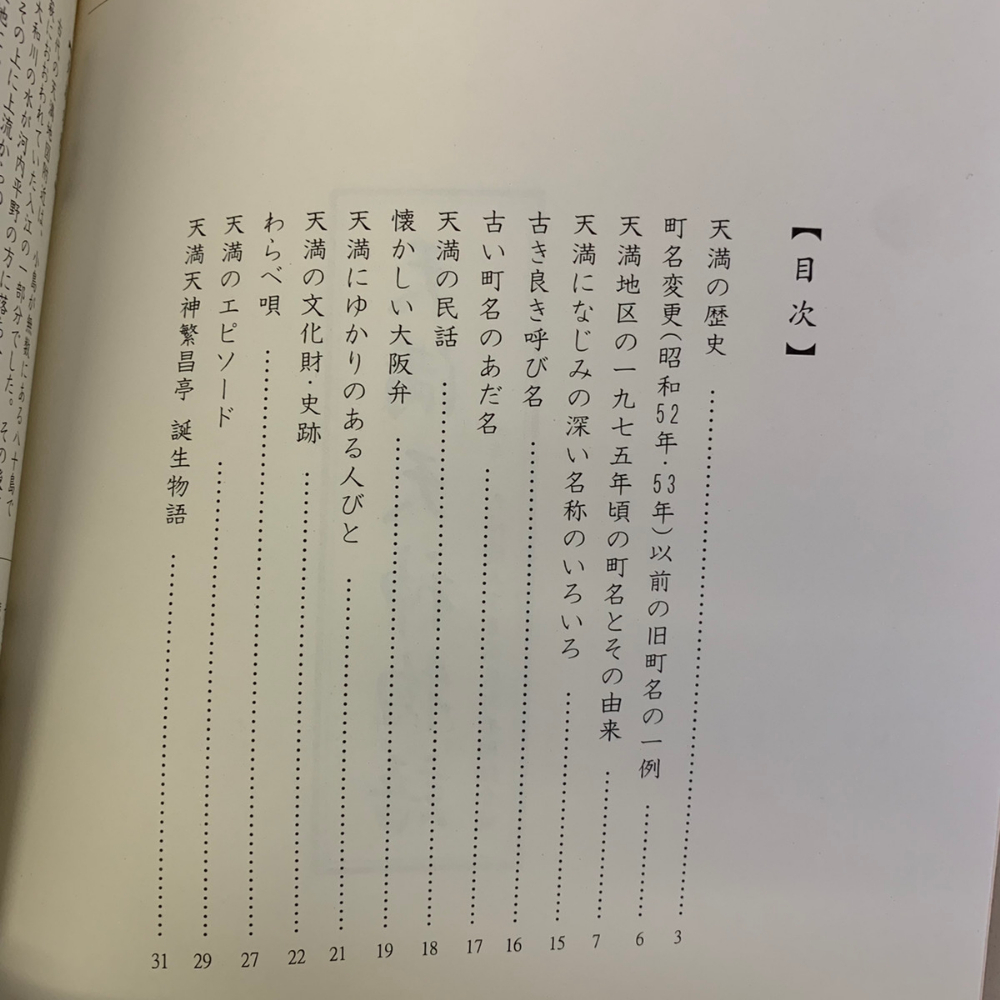 【目次】
天満の歴史 3
町名変更(昭和52年・53年)以前の旧町名の一例 6
天満地区の一九七五年頃の町名とその由来 7
天満になじみの深い名称のいろいろ 15
古き良き呼び名 16
古い町名のあだ名 17
天満の民話 18
懐かしい大阪弁 19
天満にゆかりのある人びと 21
天満の文化財・史跡 22
わらべ唄 27
天満のエピソード 29
天満天神繁昌亭 誕生物語 31
小島が無数にある八十島で
おおわれていた入江の一部分でした。
大和川の水が河内平野の方に落
その上に上流から